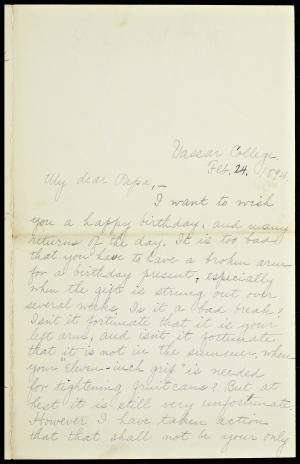 Vassar College
Feb. 24, 1894.
My dear Papa,—
I want to wish
you a happy birthday, and many
returns of the day. It is too bad
that you have to have a broken arm
for a birthday present, especially
when the gift is strung out over
several weeks. Is it a bad break?
Isn't it fortunate that it is your
left arm, and isn't it fortunate
that it is not in the summer, when
your "Eleven-inch grip" is needed
for tightening fruitcans? But at
best it is still very unfortunate.
However I have taken action
that that shall not be your only